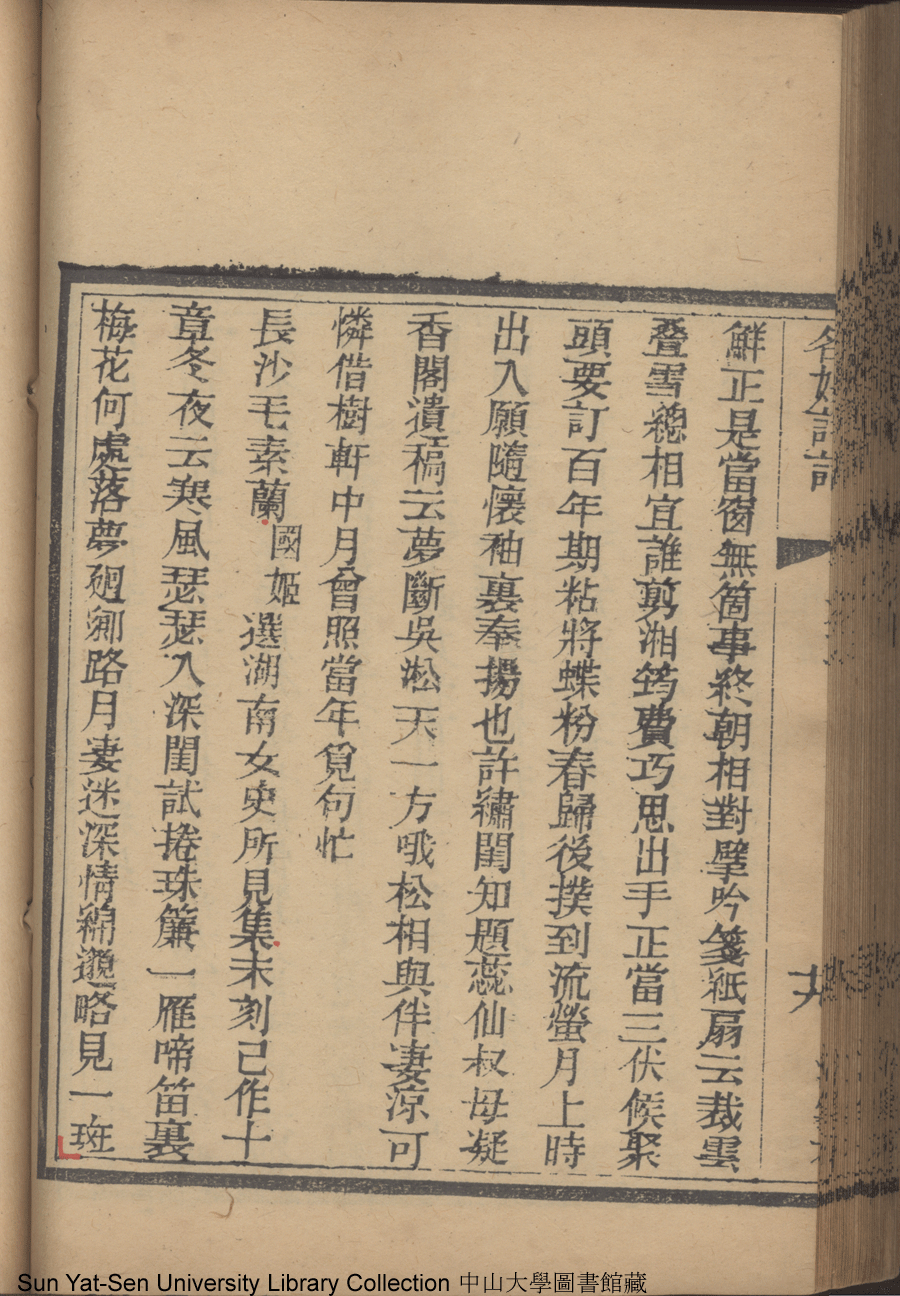 名媛詩話
鮮正是當窗無箇事終朝相對擘吟箋紙扇云裁雲
疊雪總相宜誰剪湘筠費巧思出手正當三伏候聚
頭要訂百年期粘將蝶粉春歸後撲到流螢月上時
出入願隨懷袖裏奉揚也許繡閨知題蕊仙叔母凝
香閣遺稿云夢斷吳淞天一方哦松相與伴凄涼可
憐借樹軒中月曾照當年覓句忙
長沙毛素蘭國姬選湖南女史所見集未刻己作十
章冬夜云寒風瑟瑟入深閨試捲珠簾一雁啼笛裏
梅花何處落夢廻鄉路月凄迷深情綿邈略見一斑
Sun Yat-Sen University Library Collection 中山大學圖書館藏